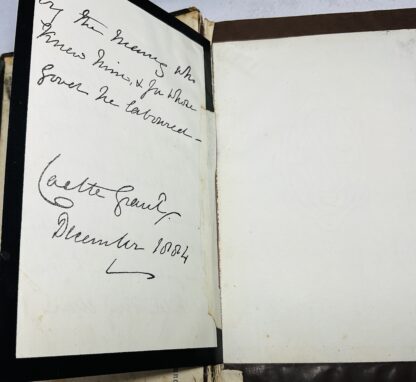 by the many who
knew him, & for whose
good he laboured –
Colette Grant.
December 1884